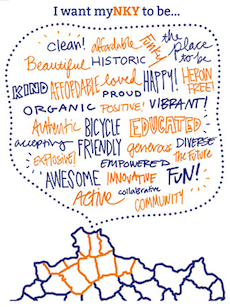 I want myNKY to be...
clean! affordable Funky the place to be
Beautiful HISTORIC
KIND AFFORDABLE loved PROUD HAPPY! HEROIN FREE!
ORGANIC POSITIVE! VIBRANT!
Authentic BICYCLE FRIENDLY EDUCATED
accepting generous DIVERSE
EXPLOSIVE! EMPOWERED the future
AWESOME INNOVATIVE FUN!
Active collaborative COMMUNITY